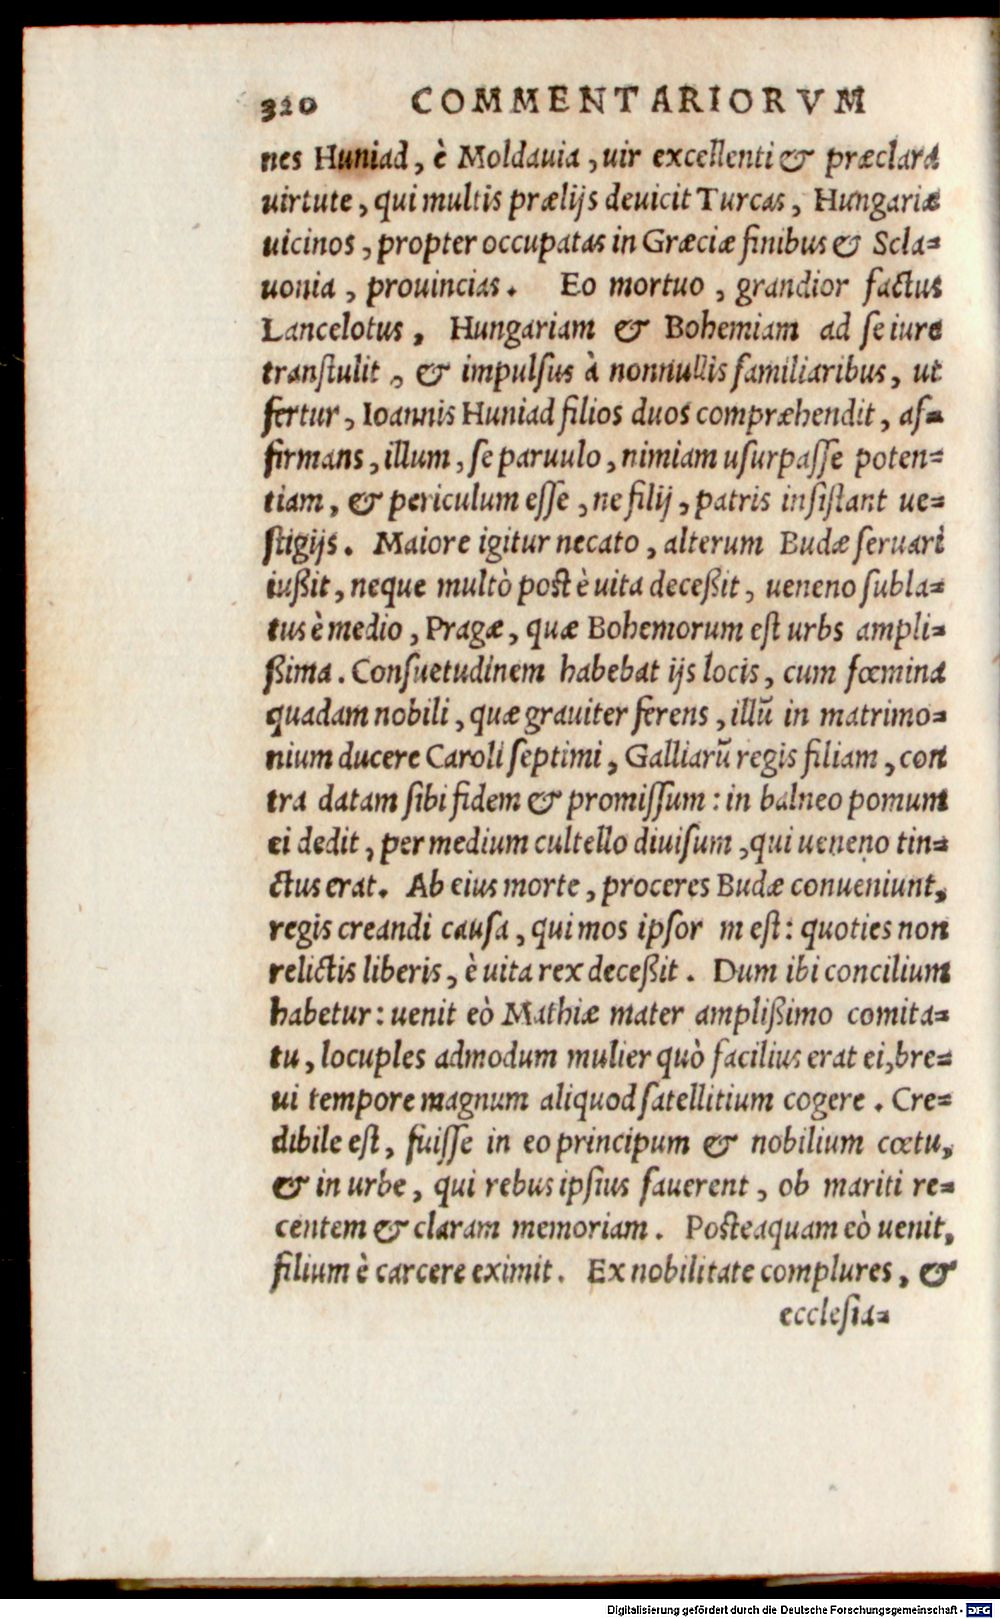 320 COMMENTARIORVM
nes Huniad, è Moldauia, uir excellenti & præclara
uirtute, qui multis prælijs deuicit Turcas, Hungariæ
uicinos, propter occupatas in Græciæ finibus & Scla-
uonia, prouincias. Eo mortuo, grandior factus
Lancelotus, Hungariam & Bohemiam ad se iure
transtulit, & impulsus à nonnullis familiaribus, ut
fertur, Ioannis Huniad filios duos compræhendit, af-
firmans, illum, se paruulo, nimiam usurpasse poten-
tiam, & periculum esse, ne filij, patris insistant ue-
stigijs. Maiore igitur necato, alterum Budæ seruari
iußit, neque multò post è uita deceßit, ueneno subla-
tus è medio, Pragæ, quæ Bohemorum est urbs ampli-
ßima. Consuetudinem habebat ijs locis, cum fœmina
quadam nobili, quæ grauiter ferens, illũ in matrimo-
nium ducere Caroli septimi, Galliarũ regis filiam, con
tra datam sibi fidem & promissum: in balneo pomum
ei dedit, per medium cultello diuisum, qui ueneno tin-
ctus erat. Ab eius morte, proceres Budæ conueniunt,
regis creandi causa, qui mos ipsor m est: quoties non
relictis liberis, è uita rex deceßit. Dum ibi concilium
habetur: uenit eò Mathiæ mater amplißimo comita-
tu, locuples admodum mulier quò facilius erat ei, bre-
ui tempore magnum aliquod satellitium cogere. Cre-
dibile est, fuisse in eo principum & nobilium cœtu,
& in urbe, qui rebus ipsius fauerent, ob mariti re-
centem & claram memoriam. Posteaquam eò uenit,
filium è carcere eximit. Ex nobilitate complures, &
ecclesia-
Digitalisierung gefördert durch die Deutsche Forschungsgemeinschaft - DFG